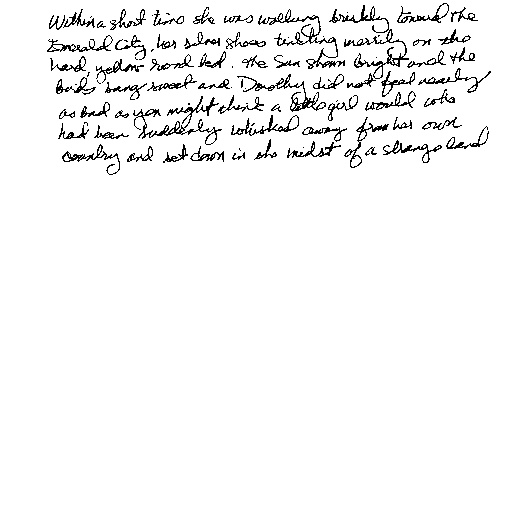 Within a short time she was walking briskly toward the
Emerald City, her silver shoes tinkling merrily on the
hard, yellow road bed. The Sun shone bright and the
birds sang sweet and Dorothy did not feel nearly
as bad as you might think a little girl would who
had been suddenly whisked away from her own
country and set down in the midst of a strange land